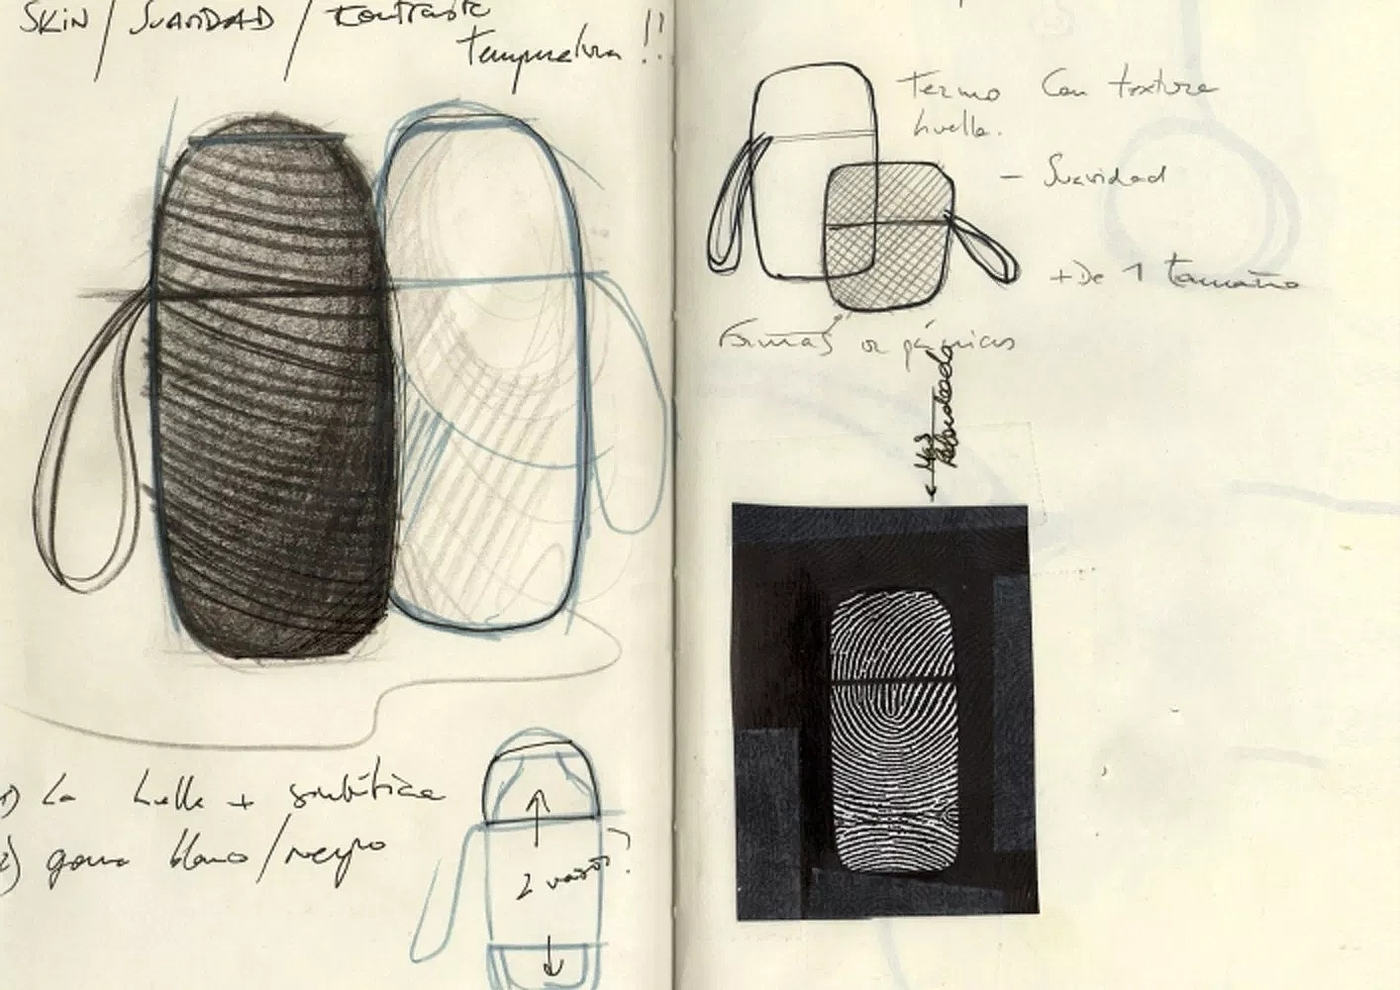 SKIN / SUAVIDAD / Contraste
Temperatura !!
Termo Con textura
huella.
- Suavidad
+ De 1 tamaño
Formas orgánicas
Más
Redondeado
1) La huella + simbólica
2) goma blanco/negro
2 vasos?